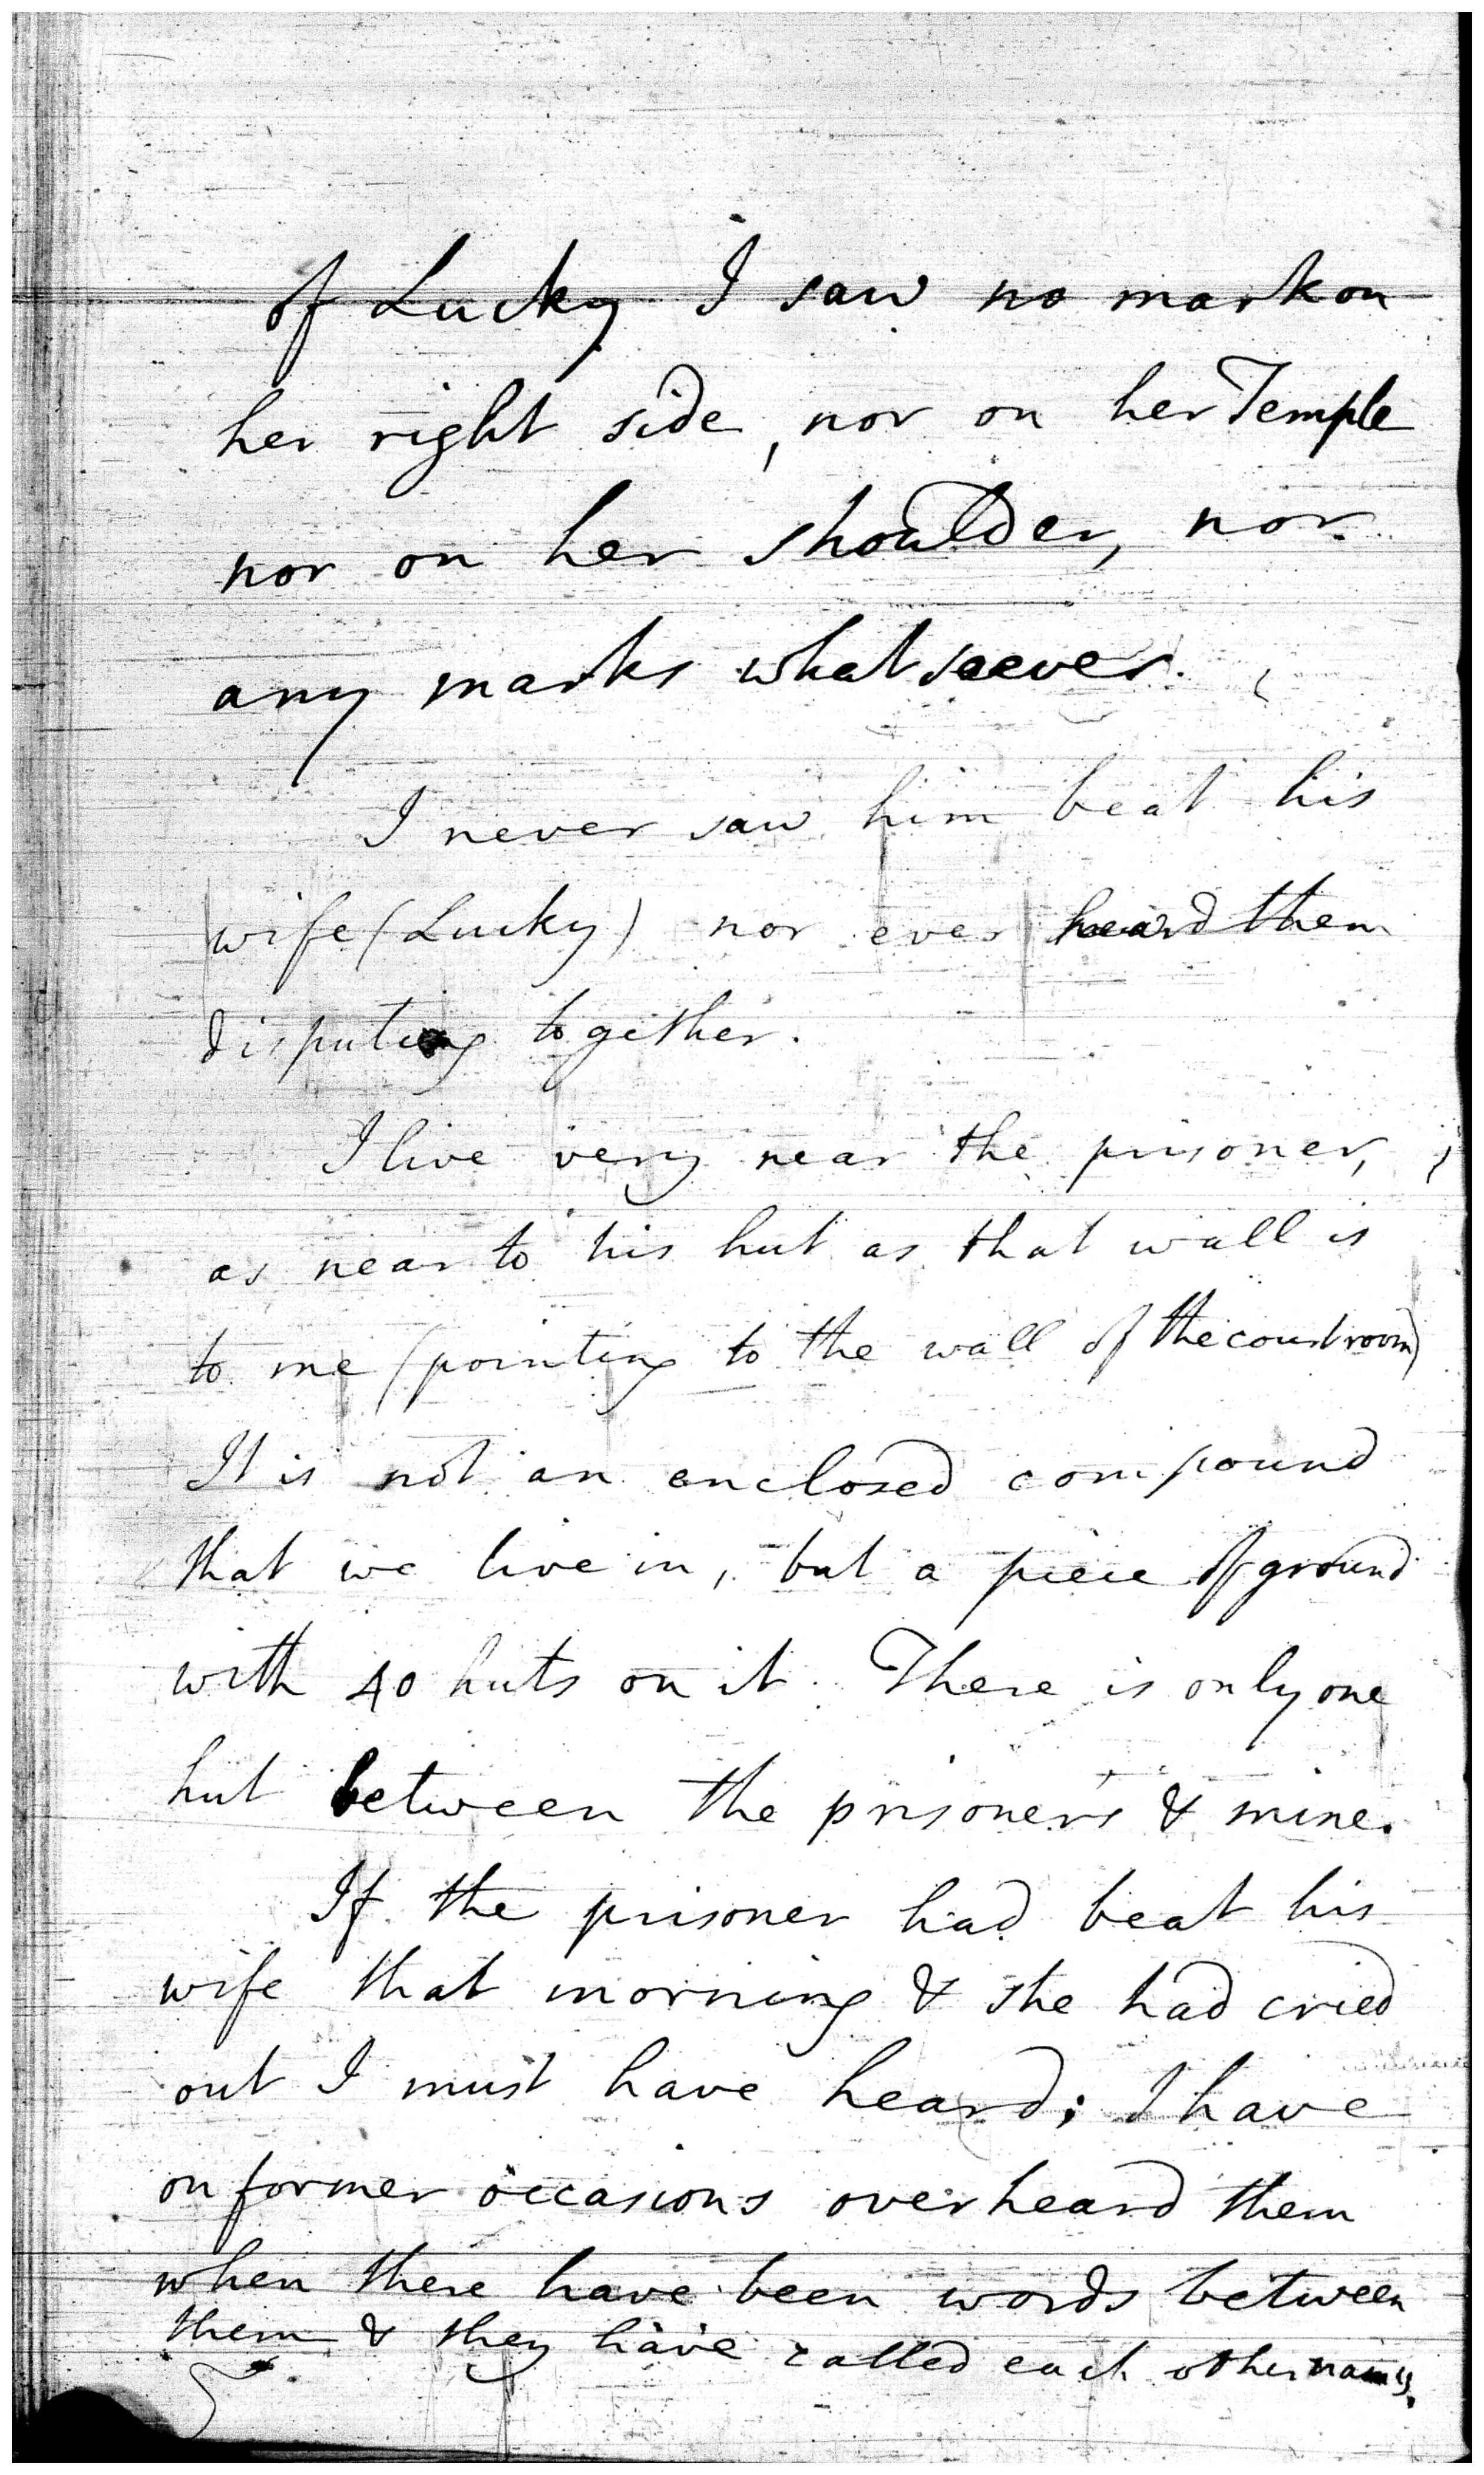 of Lucky I saw no mark on
her right side, nor on her Temple
nor on her shoulder, nor
any marks whatsoever.
I never saw him beat his
wife (Lucky) nor ever heard them
disputing together.
I live very near the prisoner,
as near to his hut as that wall is
to me (pointing to the wall of the court room)
It is not an enclosed compound
that we live in, but a piece of ground
with 40 huts on it. There is only one
hut between the prisoner's & mine.
If the prisoner had beat his
wife that morning & she had cried
out I must have heard; I have
on former occasions overheard them
when there have been words between
them & they have called each other names.